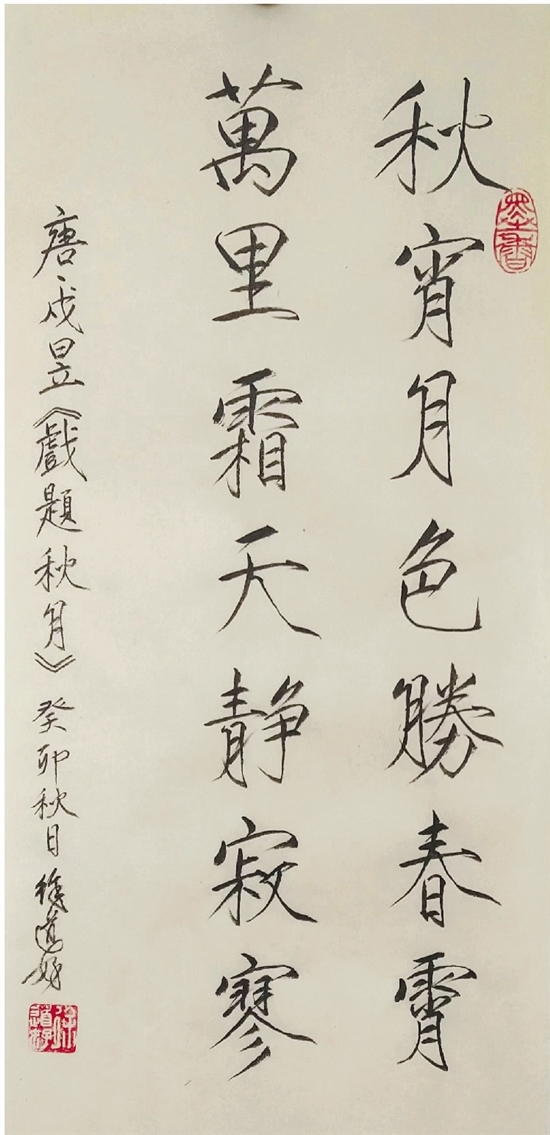 秋宵月色勝春霄
萬里霜天靜寂寥
唐·戎昱《戲題秋月》癸卯秋日徐道好
墨香